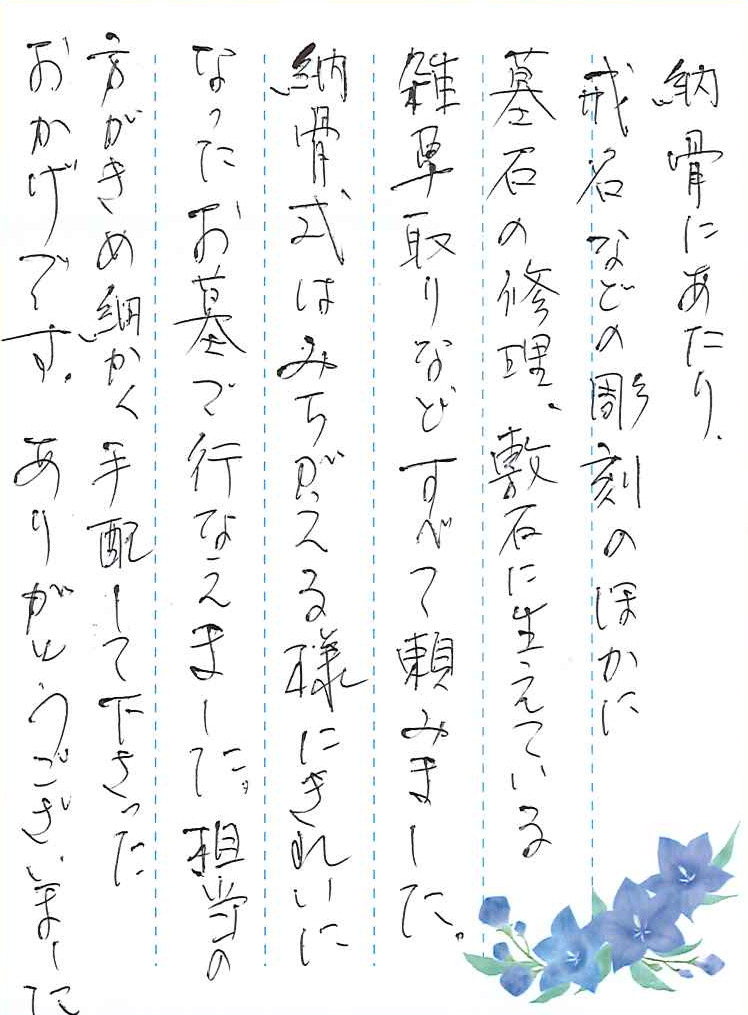 納骨にあたり、
戒名などの彫刻のほかに
墓石の修理、敷石に生えている
雑草取りなどすべて頼みました。
納骨式はみちがえる様にきれいに
なったお墓で行なえました。担当の
方がきめ細かく手配して下さった
おかげです。ありがとうございました